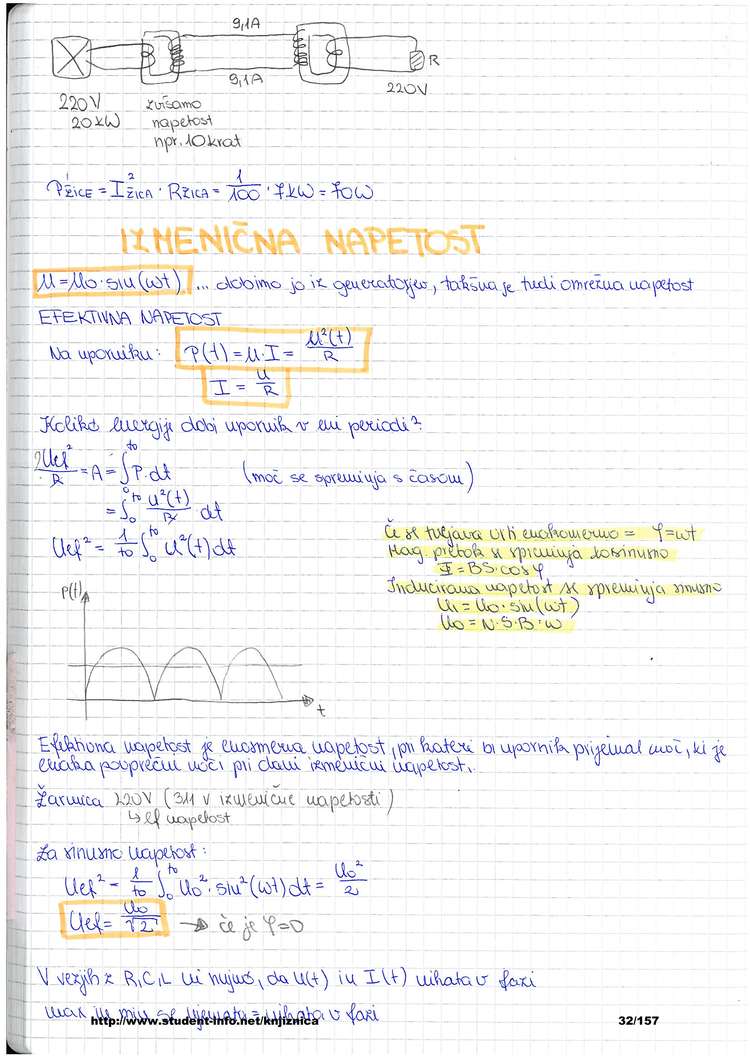 9,1A
9,1A
R
220V
20kW
zvišamo
napetost
npr. 10krat
220V
P'ŽICE = I²ŽICA · RŽICA = 1/100 · 7kW = 70W
IZMENIČNA NAPETOST
U=U₀·sin(ωt) ... dobimo jo iz generatorjev, takšna je tudi omrežna napetost
EFEKTIVNA NAPETOST
Na uporniku: P(t) = U·I = U²(t)/R
I = U/R
Koliko energije dobi upornik v eni periodi?
Uef²/R = A = ∫₀^t₀ P·dt (moč se spreminja s časom)
= ∫₀^t₀ U²(t)/R dt
Uef² = 1/t₀ ∫₀^t₀ U²(t)dt
Če se tuljava vrti enakomerno = φ=ωt
Mag. pretok se spreminja kosinusno
Φ=BS·cosφ
Inducirana napetost se spreminja sinusno
Ui = U₀·sin(ωt)
U₀ = N·S·B·ω
P(t)
t
Efektivna napetost je enosmerna napetost, pri kateri bi upornik prijemal moč, ki je
enaka povprečni moči pri dani izmenični napetosti.
Žarnica 220V (311 V izmenične napetosti)
↳ ef napetost
Za sinusno napetost:
Uef² = 1/t₀ ∫₀^t₀ U₀²·sin²(ωt)dt = U₀²/2
Uef = U₀/√2 → če je φ=0
V vezjih z R,C,L ni nujno, da U(t) in I(t) nihata v fazi
max in min se ujemata = nihata v fazi
http://www.student-info.net/knjiznica
32/157